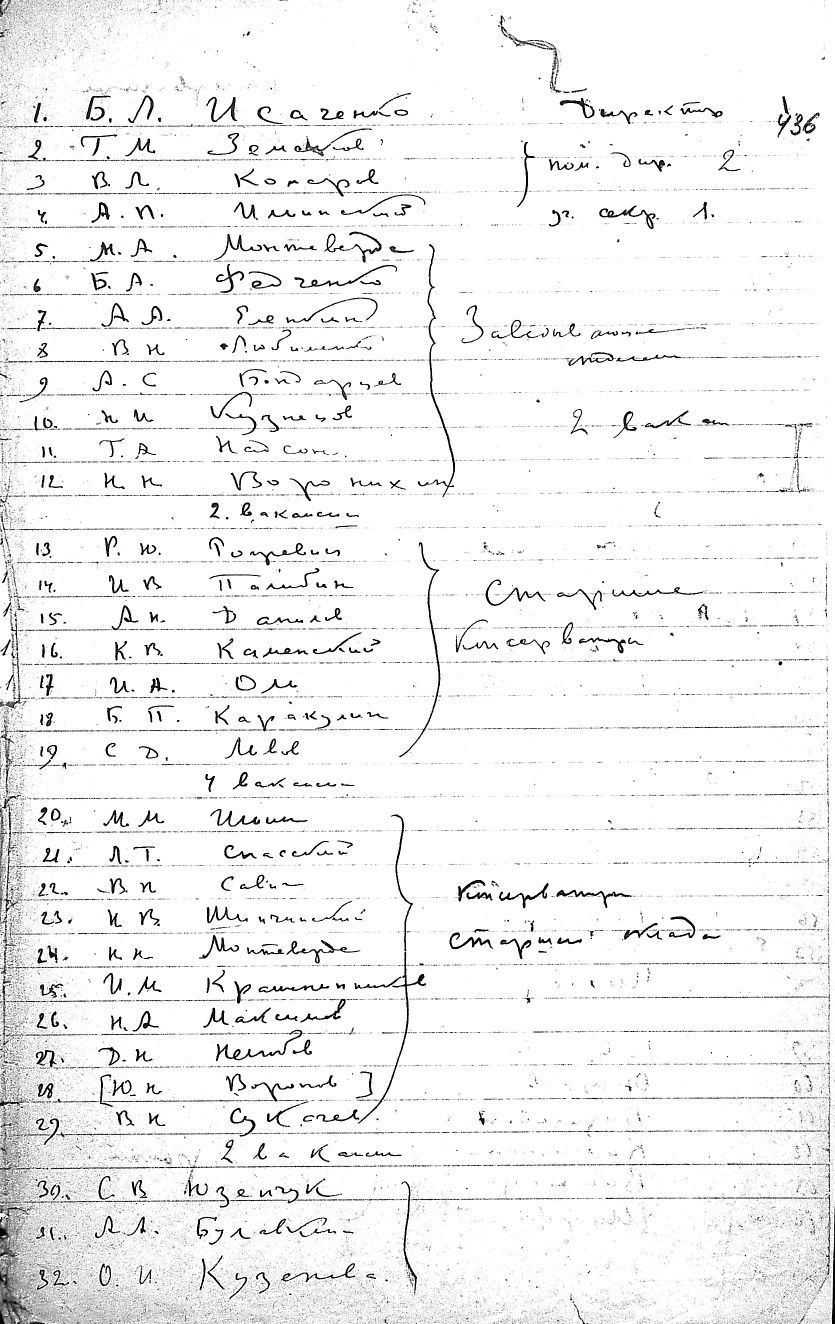 436
1. Б. Л. Исаченко Директор
2. Т. М пом. дир. 2
3 В. Л. Комаров
4. А. П. Ильинский уч. секр. 1.
5. М. А. Монтеверде
6 Б. А. Федченко
7. А. А. Еленкин Заведывающие
8 В Н Любименко отделом
9 А. С Бондарцев
10. Н И Кузнецов 2 вакан
11. Г. А Надсон.
12 Н. Н Воронихин
2. вакансии
13. Р. Ю. Рожевиц
14. И В Палибин Старшие
15. А Н. Данилов
16. К. В. Каменский Консерваторы
17 И. А. Ол
18 Б. П. Каракулин
19. С Д. Львов
4 вакансии
20. М. М Ильин
21. Л. Т. Спасский
22. В П Савич Консерваторы
23. Н В. Шипчинский
24. Н. Н Монтеверде старшего оклада
25. И. М Крашенинников
26. Н. А Максимов
27. Д. Н Нелюбов
28 [Ю. Н Воронов]
29. В Н Сукачев
2 вакансии
30. С В Юзепчук
31. А. А. Булавкина
32. О. И. Кузенева.